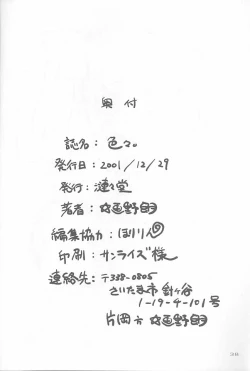 奥付
誌名：色々。
発行日：2001/12/29
発行：漣々堂
著者：
編集協力：ほりりん
印刷：サンライズ様
連絡先：〒338-0805
さいたま市 針ヶ谷
1-19-4-101号
片岡方